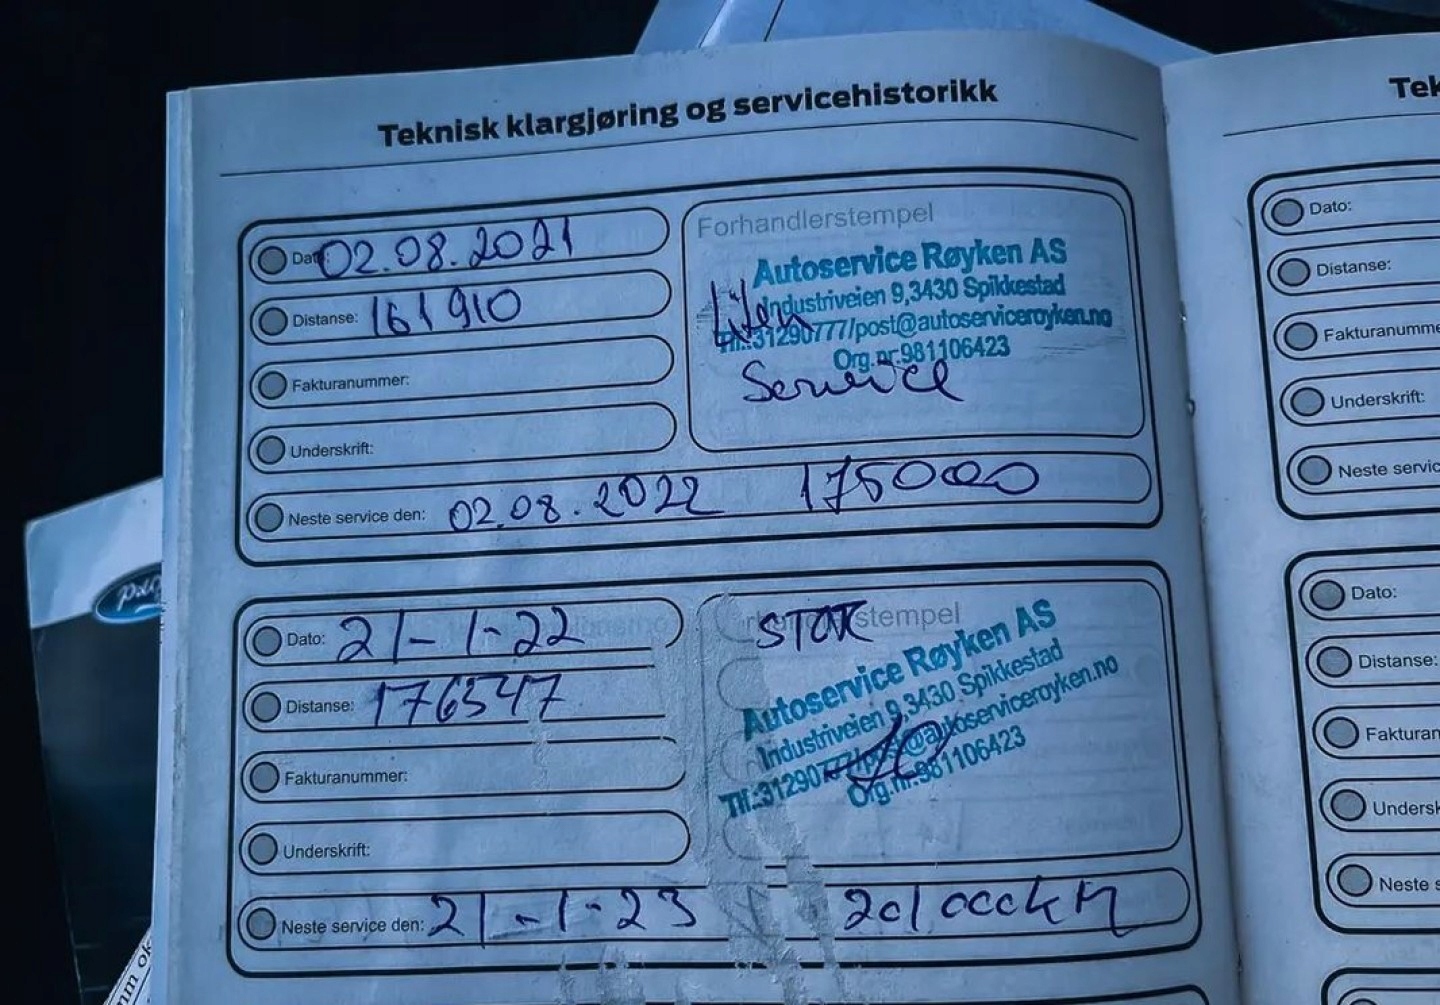 Teknisk klargjøring og servicehistorikk
Dato: 02.08.2021
Distanse: 161910
Fakturanummer:
Underskrift:
Forhandlerstempel
Autoservice Røyken AS
Industriveien 9,3430 Spikkestad
Tlf.:31290777/post@autoserviceroyken.no
Org.nr.981106423
Liten
Service
Neste service den: 02.08.2022 175000
Dato: 21-1-22
Distanse: 176547
Fakturanummer:
Underskrift:
STOR
stempel
Autoservice Røyken AS
Industriveien 9,3430 Spikkestad
Tlf.:31290777/post@autoserviceroyken.no
Org.nr.:981106423
Neste service den: 21-1-23
Tek
Dato:
Distanse:
Fakturanumme
Underskrift:
Neste servic
Dato:
Distanse:
Fakturan
Undersk
Neste s